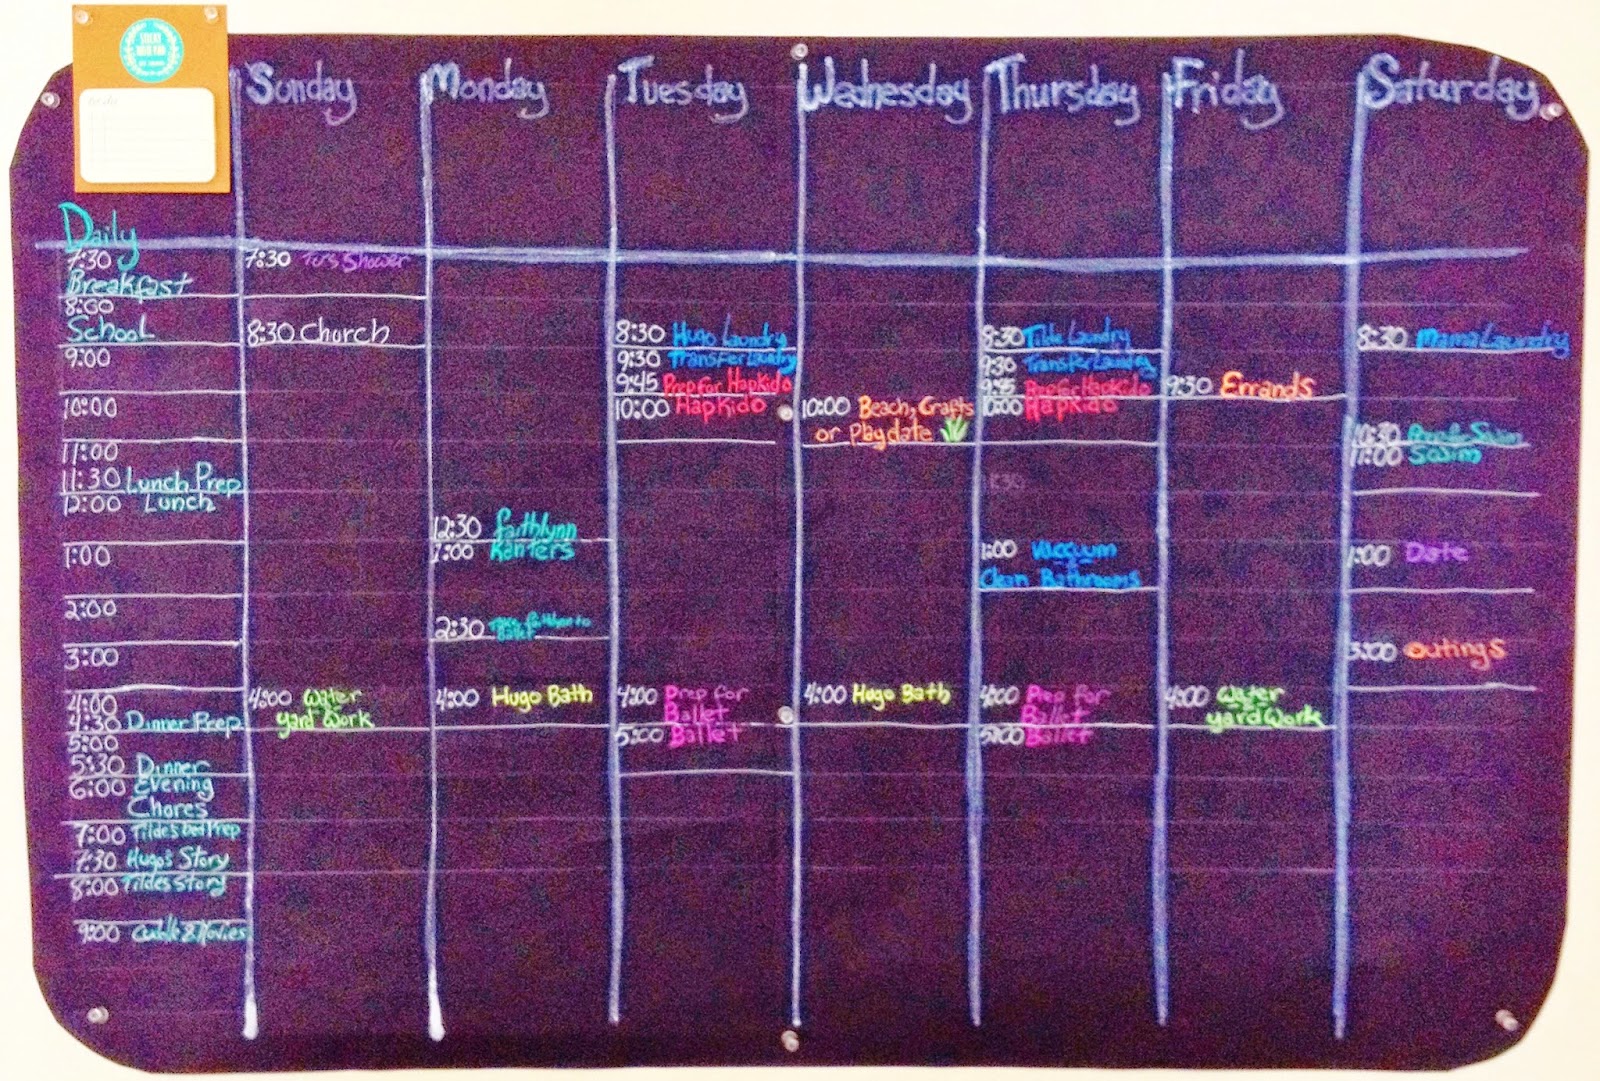 Sunday Monday Tuesday Wednesday Thursday Friday Saturday
Daily
7:30
Breakfast
8:00
School
9:00
10:00
11:00
11:30 Lunch Prep
12:00 Lunch
1:00
2:00
3:00
4:00
4:30 Dinner Prep
5:00
5:30 Dinner
6:00 Evening
Chores
7:00 Tilde's Bed Prep
7:30 Hugo's Story
8:00 Tilde's Story
9:00 Cuddle & Movies
7:30 Shower
8:30 Church
4:00 Water
yard Work
12:30 Faithlynn
1:00 Kanters
2:30 Take Faithlynn to
Ballet
4:00 Hugo Bath
8:30 Hugo Laundry
9:30 Transfer Laundry
9:45 Prep for Hapkido
10:00 Hapkido
4:00 Prep for
Ballet
5:00 Ballet
10:00 Beach, Crafts
or Playdate
4:00 Hugo Bath
8:30 Tilde Laundry
9:30 Transfer Laundry
9:45 Prep for Hapkido
10:00 Hapkido
1:00 Vacuum
Clean Bathrooms
4:00 Prep for
Ballet
5:00 Ballet
9:30 Errands
4:00 Water
yard Work
8:30 Mama Laundry
10:30 Prep for Swim
11:00 Swim
1:00 Date
3:00 Outings